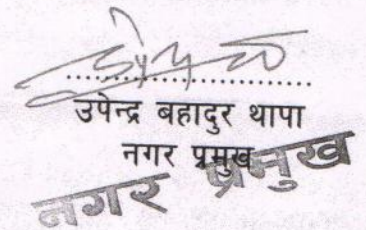 ....................................
उपेन्द्र बहादुर थापा
नगर प्रमुख
नगर प्रमुख